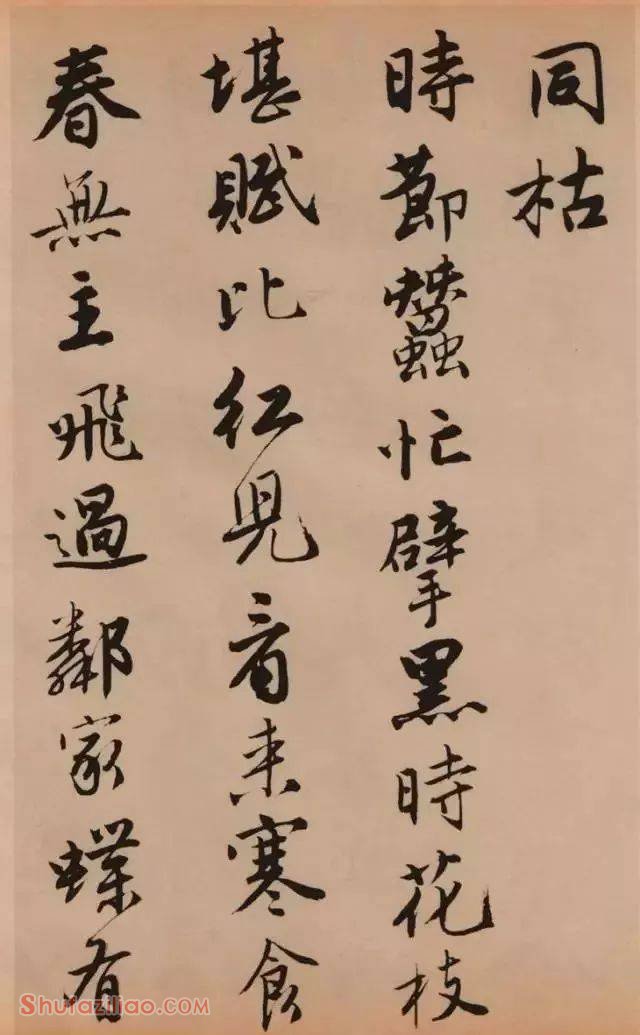 同枯
時節蠶忙擘黑時花枝
堪賦比紅兒看來寒食
春無主飛過鄰家蝶有
Shufaziliao.com